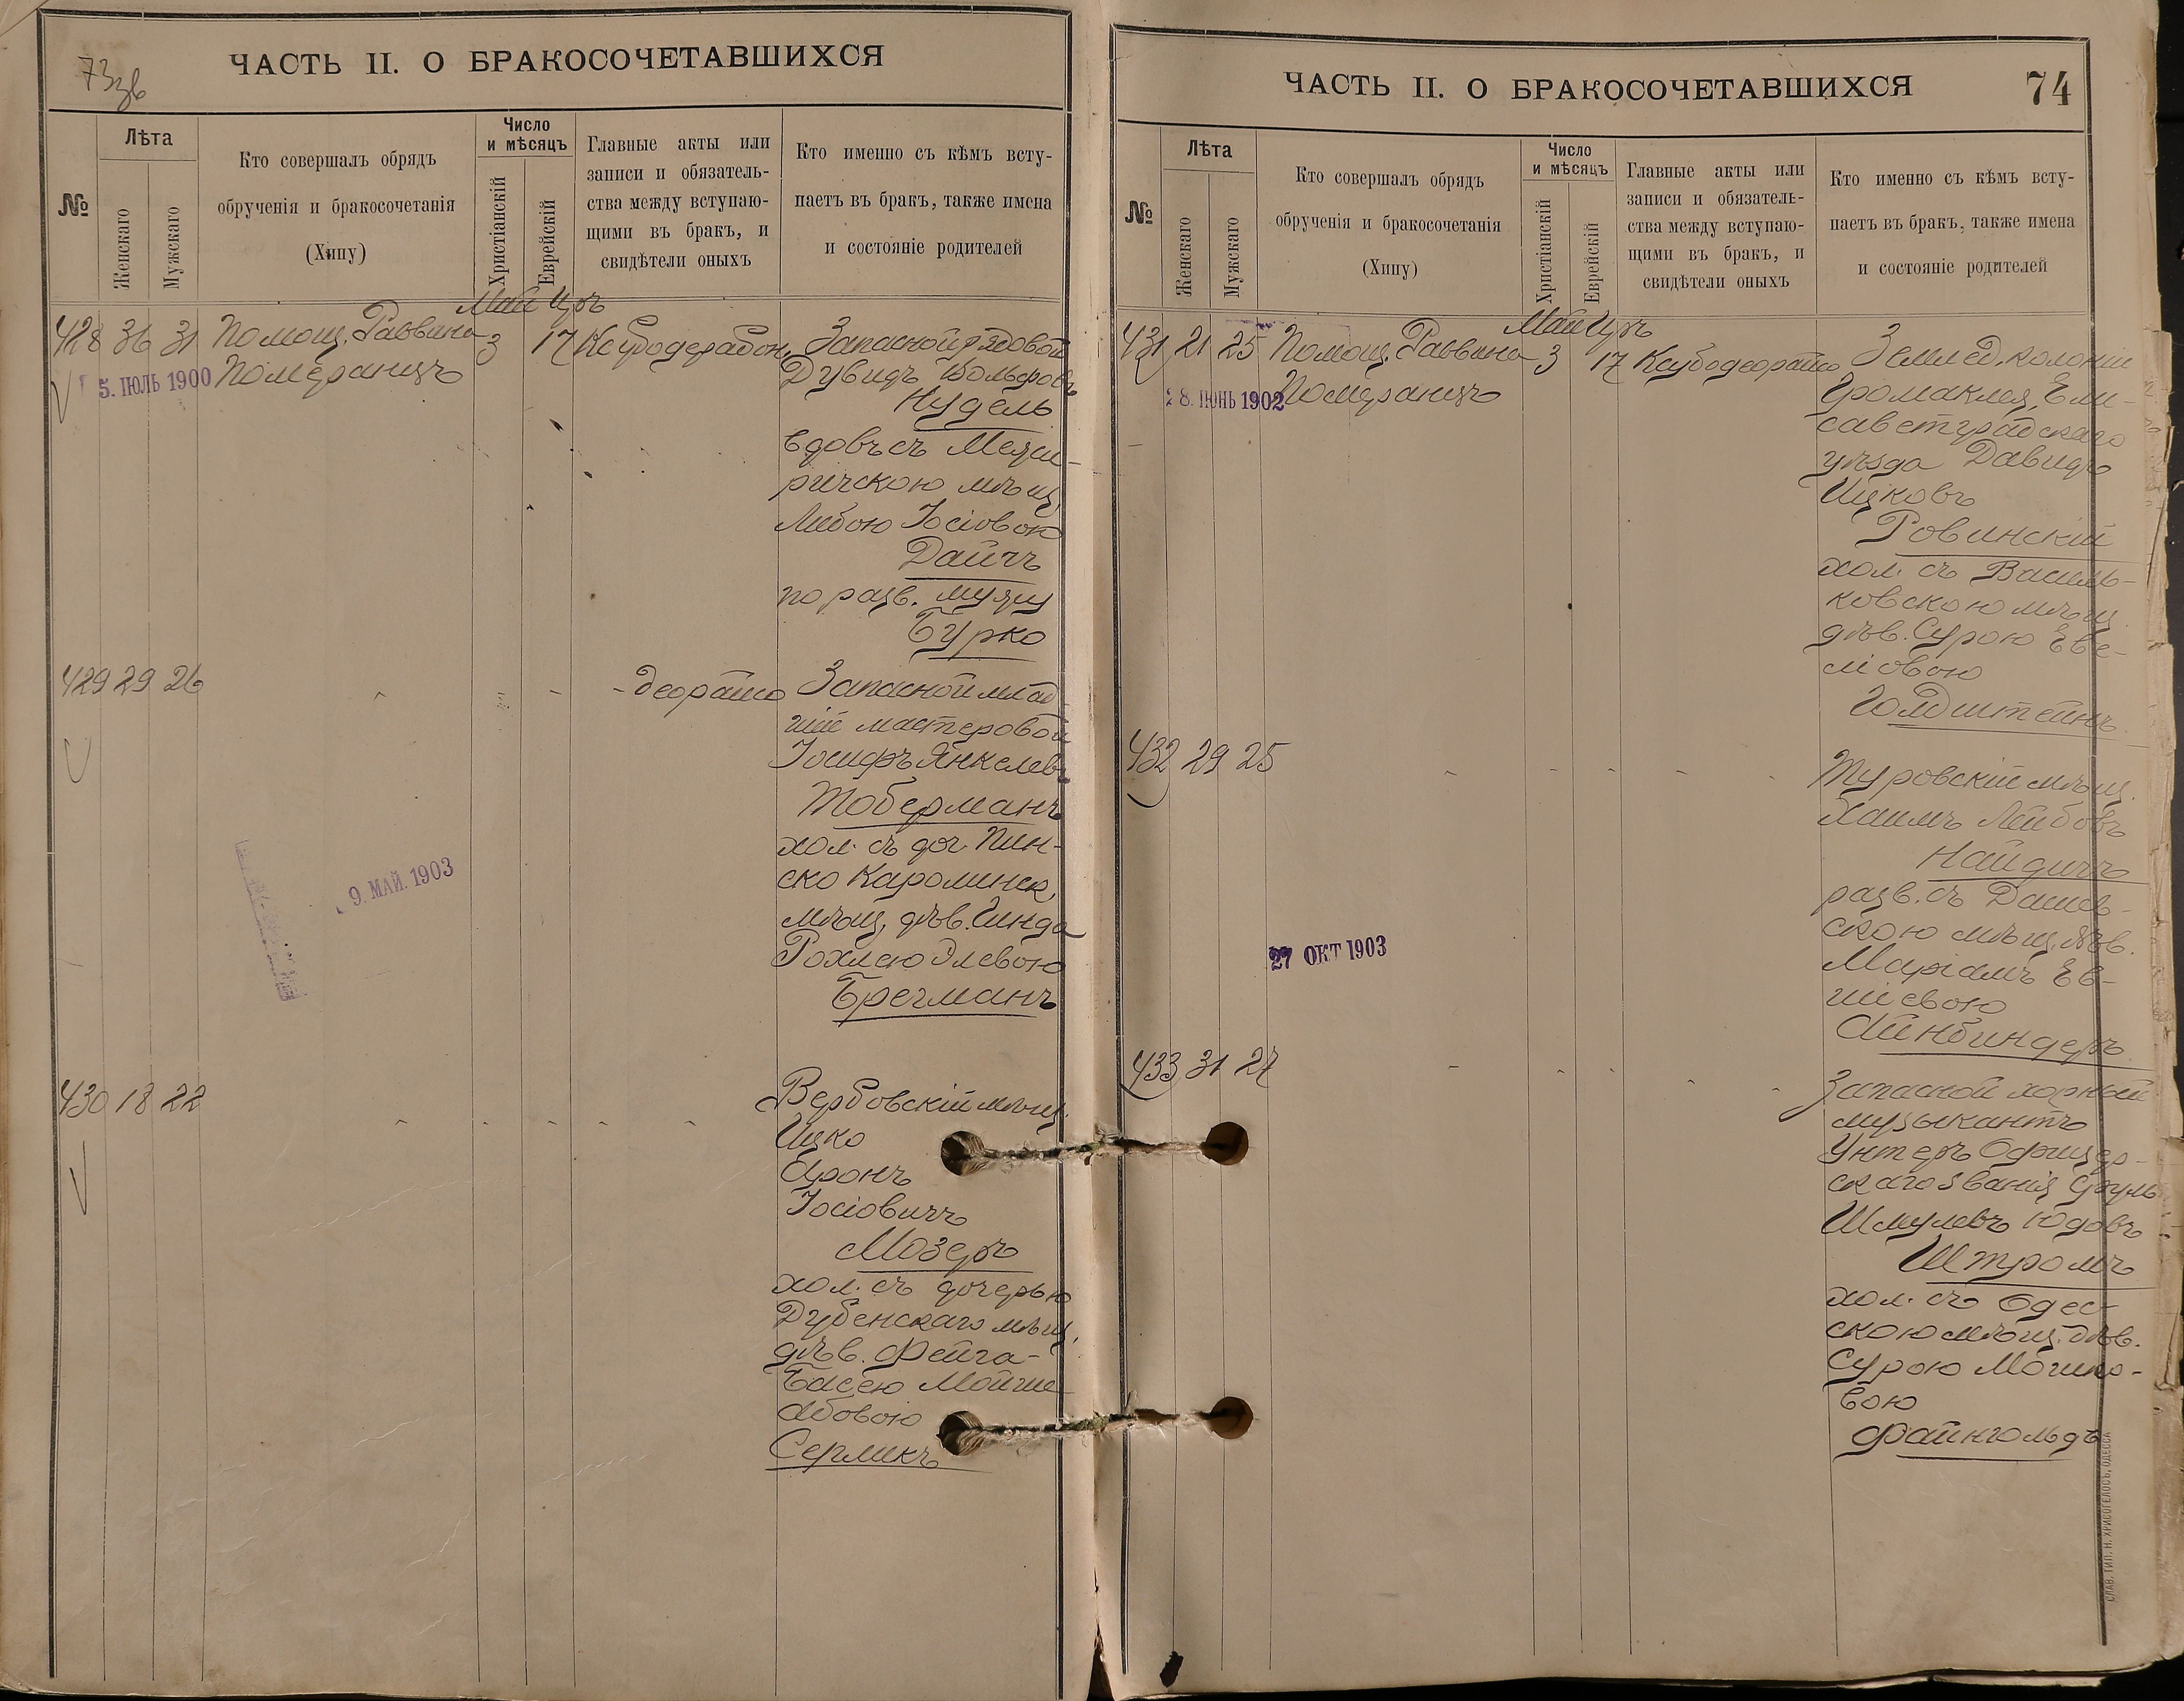 73 зв
ЧАСТЬ II. О БРАКОСОЧЕТАВШИХСЯ
№
Лѣта
Женскаго
Мужскаго
Кто совершалъ обрядъ
обрученія и бракосочетанія
(Хипу)
Число
и мѣсяцъ
Христіанскій
Еврейскій
Главные акты или
записи и обязатель-
ства между вступаю-
щими въ бракъ, и
свидѣтели оныхъ
Кто именно съ кѣмъ всту-
паетъ въ бракъ, также имена
и состояніе родителей
Май Иръ
428 36 31 Помощ. Раввина 3 17 Запасной рядовой
Померанцъ
5. ІЮЛЬ 1900
Дувидъ Вольфовъ
Нудель
вдовъ съ Межи-
ричскою мѣщ.
Либою Іосіовою
Дайчъ
по разв. мужу
Бурко
429 29 26 - деорайсо Запасной млад-
шій мастеровой
Іосифъ Янкелевъ
Тоберманъ
хол. съ доч. Пин-
ско Каролинск.
мѣщ. дѣв. Гинда
Рохлею Элевою
Брегманъ
9. МАЙ. 1903
430 18 22 Вербовскій мѣщ.
Ицко
Аронъ
Іосіовичъ
Мозеръ
хол. съ дочерью
Дубенскаго мѣщ.
дѣв. Фейга-
Басею Мойше
Абовою
Серликъ
ЧАСТЬ II. О БРАКОСОЧЕТАВШИХСЯ
74
№
Лѣта
Женскаго
Мужскаго
Кто совершалъ обрядъ
обрученія и бракосочетанія
(Хипу)
Число
и мѣсяцъ
Христіанскій
Еврейскій
Главные акты или
записи и обязатель-
ства между вступаю-
щими въ бракъ, и
свидѣтели оныхъ
Кто именно съ кѣмъ всту-
паетъ въ бракъ, также имена
и состояніе родителей
Май Иръ
431 21 25 Помощ. Раввина 3 17 Ксубодеорайсо Землед. колоніи
Померанцъ
28. ІЮНЬ 1902
Громаклея, Ели-
саветградскаго
уѣзда Давидъ
Ицковъ
Ровинскій
хол. съ Василь-
ковскою мѣщ.
дѣв. Сурою Еве-
ліовою
Голдштейнъ
432 29 25 Туровскій мѣщ.
Хаимъ Лейбовъ
Найдичъ
разв. съ Дашев-
скою мѣщ. дѣв.
Маріамъ Ев-
шіевою
Айнбиндеръ
27 ОКТ 1903
433 31 27 Запасной хорный
музыкантъ
Унтеръ Офицер-
скаго званія Сруль
Шмулевъ Юдовъ
Штромъ
хол. съ Одес-
скою мѣщ. дѣв.
Сурою Мошко-
вою
Файнгольдъ
СЛАВ. ТИП. Н. ХРИСОГЕЛОСЪ, ОДЕССА